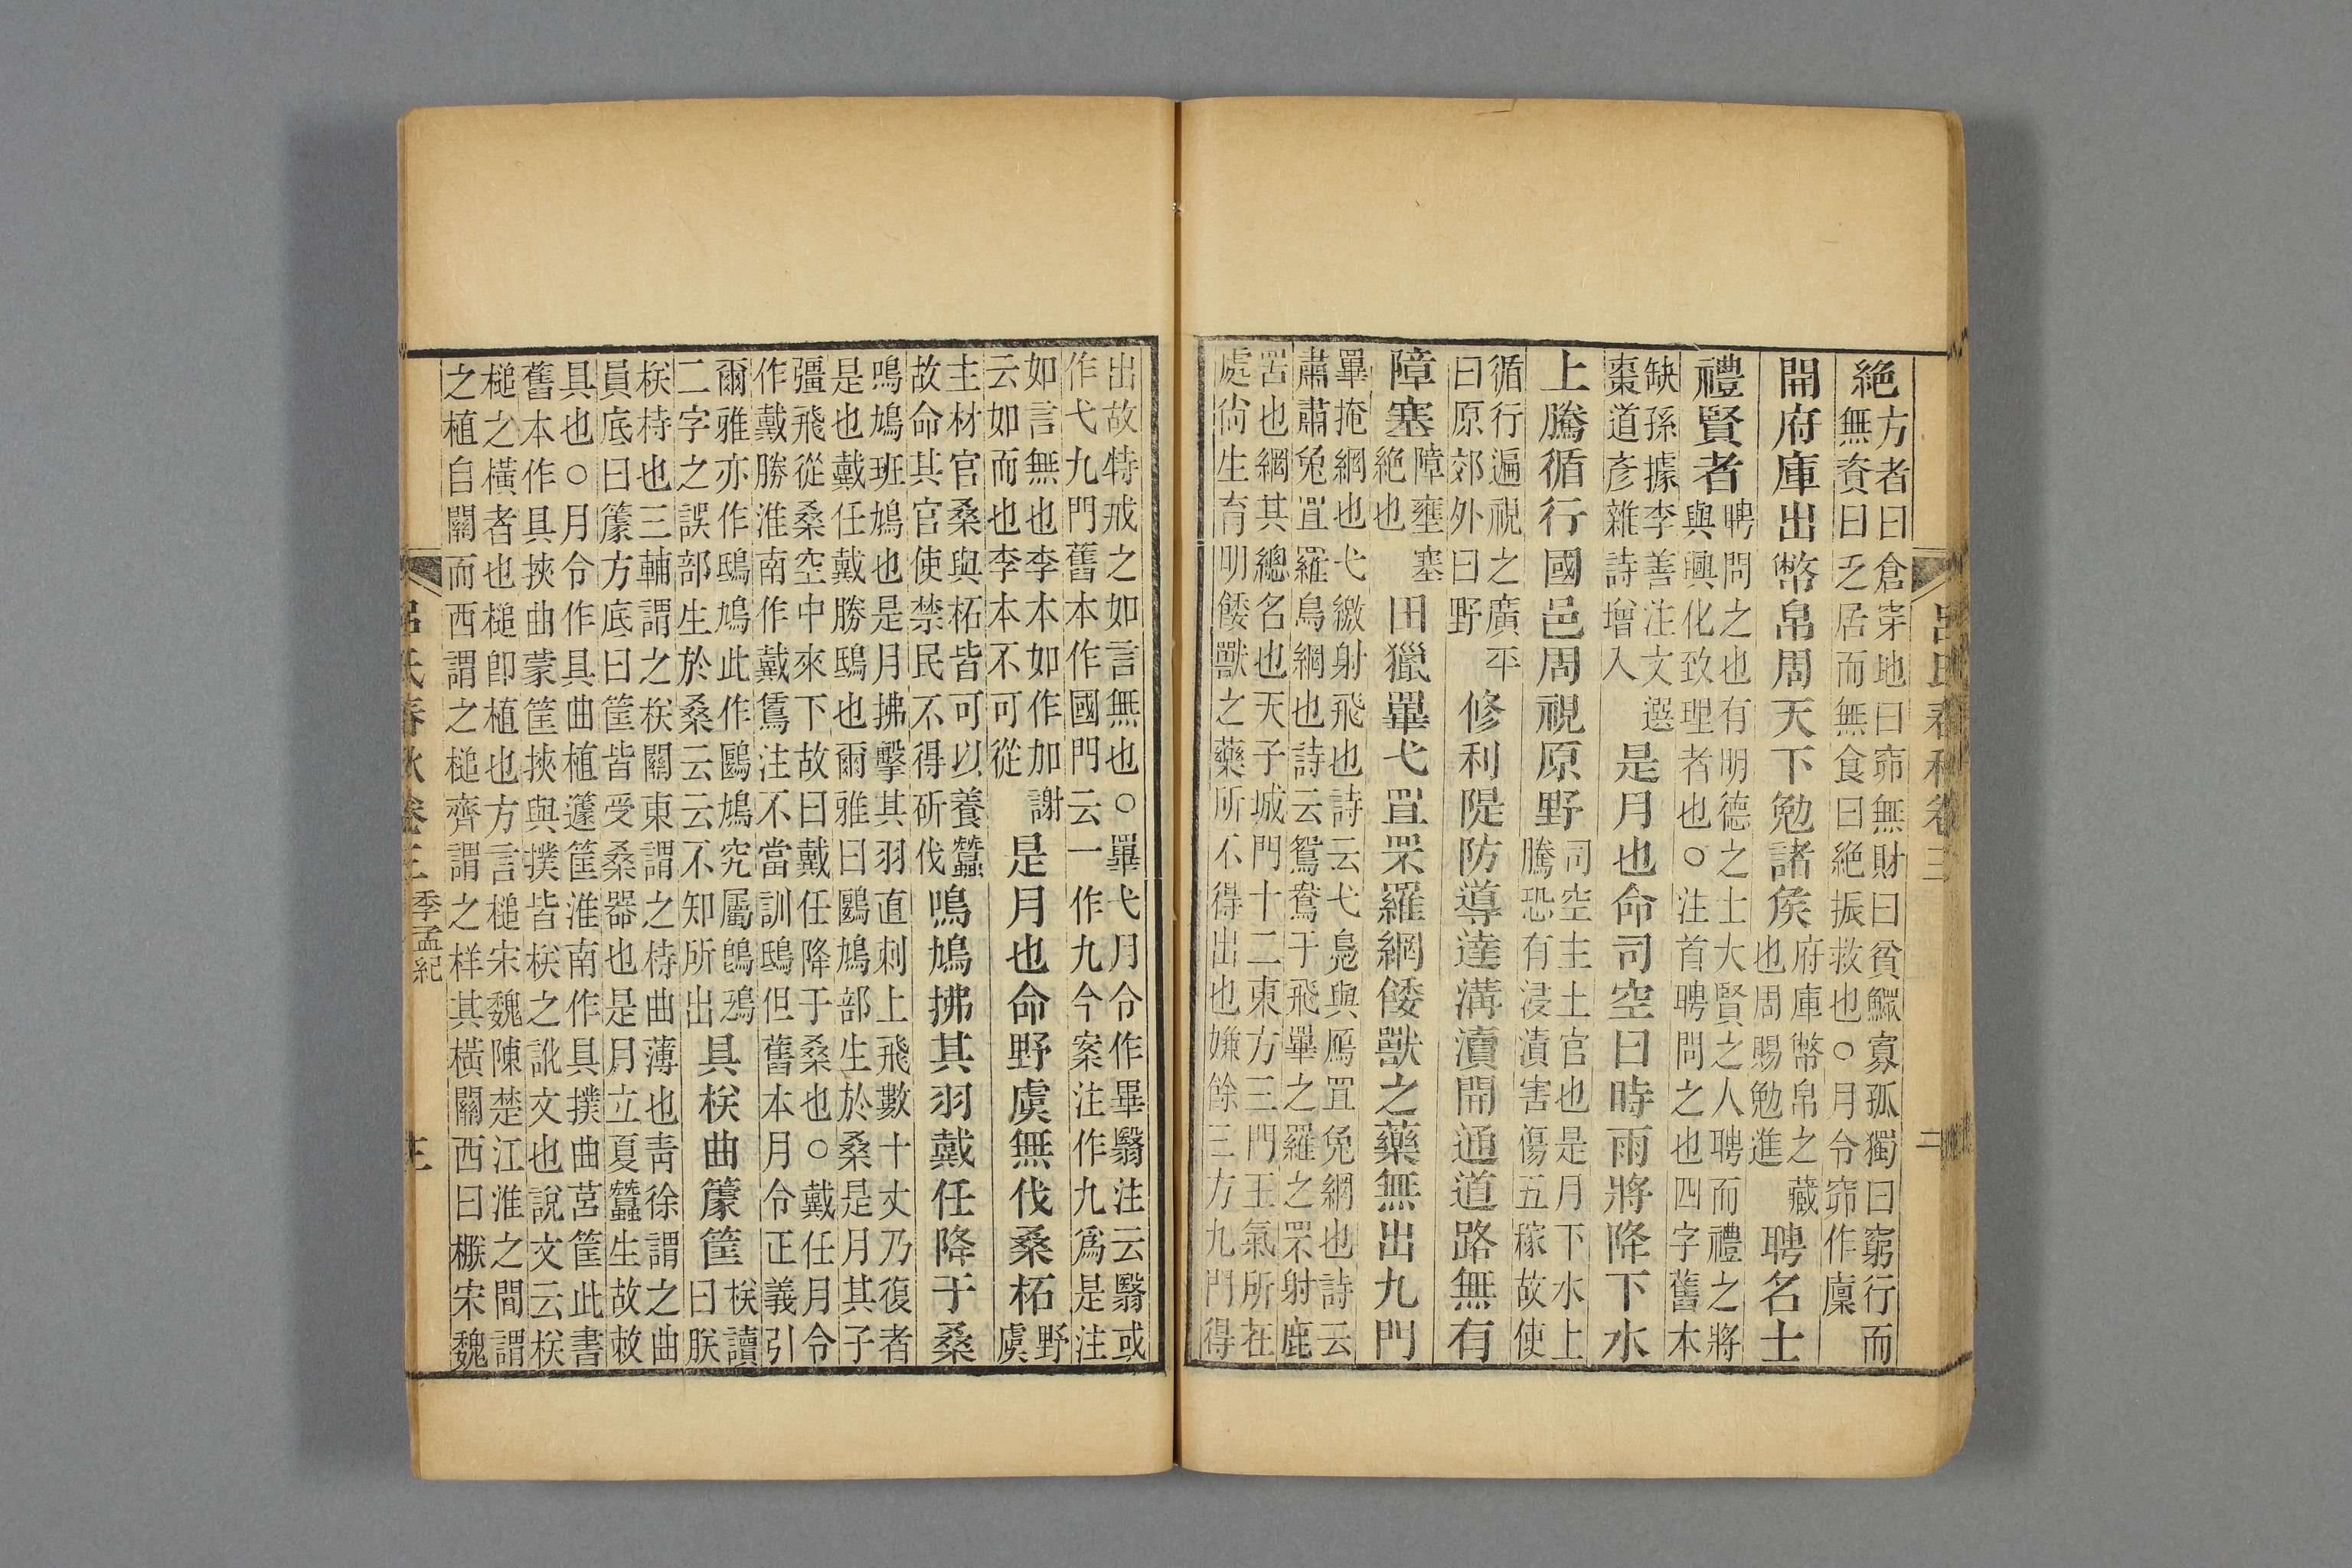 呂氏春秋卷三 二
絕方者曰倉穿地曰窌無財曰貧鰥寡孤獨曰窮行而無資曰乏居而無食曰絕振救也○月令窌作廩
開府庫出幣帛周天下勉諸侯府庫幣帛之藏也周賜勉進聘名士
禮賢者聘問之也有明德之士大賢之人聘而禮之將與興化致理者也○注首聘問之也四字舊本
缺孫據李善注文選棗道彥雜詩增入是月也命司空曰時雨將降下水
上騰循行國邑周視原野司空主土官也是月下水上騰恐有浸漬害傷五稼故使
循行遍視之廣平曰原郊外曰野修利隄防導達溝瀆開通道路無有
障塞障壅塞絕也田獵罼弋罝罘羅網餧獸之藥無出九門
罼掩網也弋繳射飛也詩云弋鳧與鴈罝兔網也詩云肅肅兔罝羅鳥網也詩云鴛鴦于飛罼之羅之罘射鹿
罟也網其總名也天子城門十二東方三門王氣所在處尚生育明餧獸之藥所不得出也嫌餘三方九門得
出故特戒之如言無也○罼弋月令作畢翳注云翳或作弋九門舊本作國門云一作九今案注作九爲是注
如言無也李本如作加謝云如而也李本不可從是月也命野虞無伐桑柘野虞
主材官桑與柘皆可以養蠶故命其官使禁民不得斫伐鳴鳩拂其羽戴任降于桑
鳴鳩班鳩也是月拂擊其羽直刺上飛數十丈乃復者是也戴任戴勝鴟也爾雅曰鷗鳩部生於桑是月其子
彊飛從桑空中來下故曰戴任降于桑也○戴任月令作戴勝淮南作戴鵀注不當訓鴟但舊本月令正義引
爾雅亦作鴟鳩此作鷗鳩究屬二字之誤部生於桑云云不知所出具栚曲䉚筐栚讀曰朕
栚栫也三輔謂之栚關東謂之栫曲薄也青徐謂之曲員底曰䉚方底曰筐皆受桑器也是月立夏蠶生故敕
具也○月令作具曲植籧筐淮南作具撲曲筥筐此書舊本作具挾曲蒙筐挾與撲皆栚之訛文也說文云栚
槌之橫者也槌卽植也方言槌宋魏陳楚江淮之間謂之植自關而西謂之槌齊謂之样其橫關西曰㯕宋魏
呂氏春秋卷三 季孟紀 三